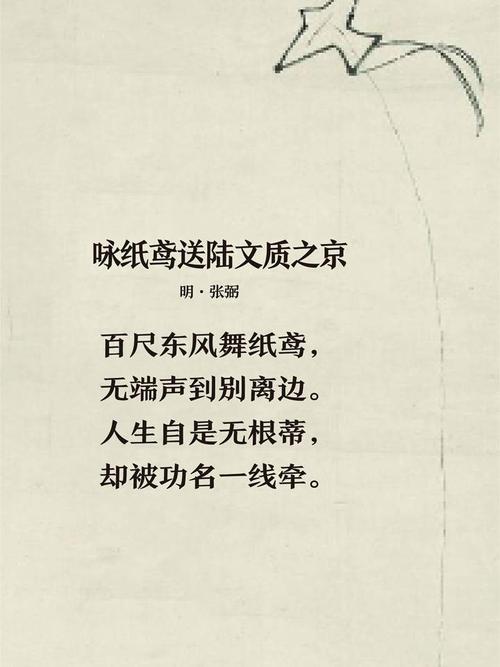 咏纸鸢送陆文质之京
明·张弼
百尺东风舞纸鸢，
无端声到别离边。
人生自是无根蒂，
却被功名一线牵。